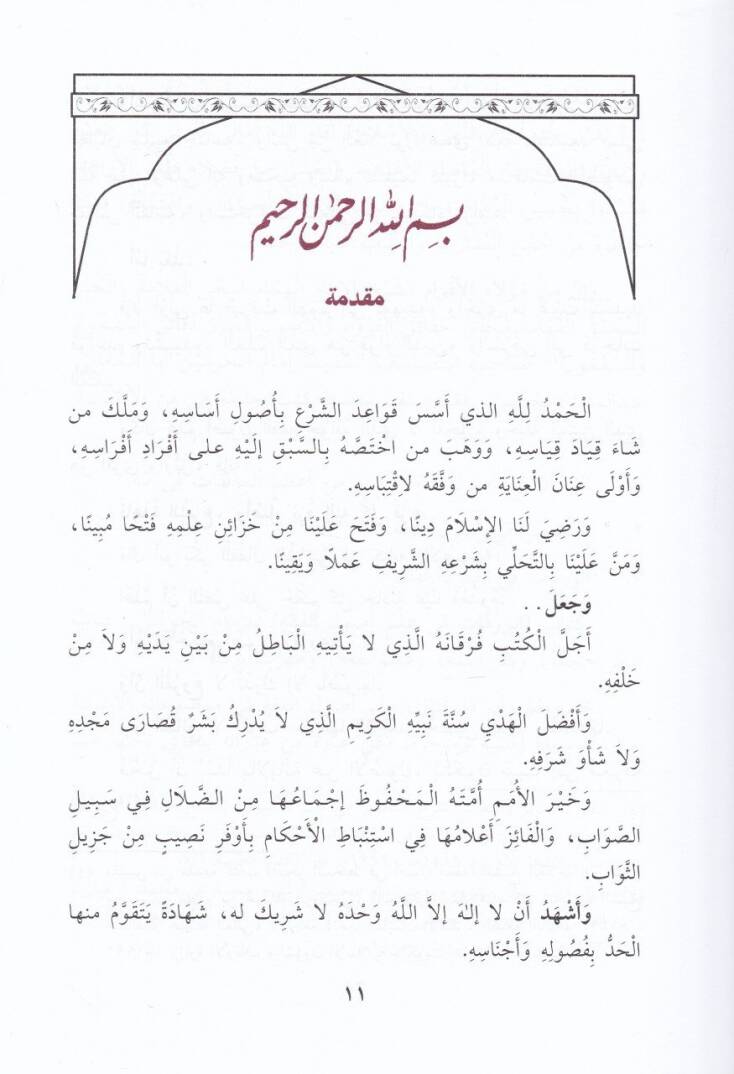 بسم الله الرحمن الرحيم
مقدمة
الْحَمْدُ لِلَّهِ الذي أَسَّسَ قَوَاعِدَ الشَّرْعِ بِأُصُولِ أَسَاسِهِ، وَمَلَّكَ من
شَاءَ قِيَادَ قِيَاسِهِ، وَوَهَبَ من اخْتَصَّهُ بِالسَّبْقِ إلَيْهِ على أَفْرَادِ أَفْرَاسِهِ،
وَأَوْلَى عِنَانَ الْعِنَايَةِ من وَفَّقَهُ لاِقْتِبَاسِهِ.
وَرَضِيَ لَنَا الإِسْلَامَ دِينًا، وَفَتَحَ عَلَيْنَا مِنْ خَزَائِنِ عِلْمِهِ فَتْحًا مُبِينًا،
وَمَنَّ عَلَيْنَا بِالتَّحَلِّي بِشَرْعِهِ الشَّرِيفِ عَمَلًا وَيَقِينًا.
وَجَعَلَ..
أَجَلَّ الْكُتُبِ فُرْقَانَهُ الَّذِي لا يَأْتِيهِ الْبَاطِلُ مِنْ بَيْنِ يَدَيْهِ وَلاَ مِنْ
خَلْفِهِ.
وَأَفْضَلَ الْهَدْيِ سُنَّةَ نَبِيِّهِ الْكَرِيمِ الَّذِي لاَ يُدْرِكُ بَشَرٌ قُصَارَى مَجْدِهِ
وَلاَ شَأْوَ شَرَفِهِ.
وَخَيْرَ الأُمَمِ أُمَّتَهُ الْمَحْفُوظَ إجْمَاعُهَا مِنْ الضَّلَالِ فِي سَبِيلِ
الصَّوَابِ، وَالْفَائِزَ أَعْلَامُهَا فِي اسْتِنْبَاطِ الْأَحْكَامِ بِأَوْفَرِ نَصِيبٍ مِنْ جَزِيلِ
الثَّوَابِ.
وَأَشْهَدُ أَنْ لا إلهَ إلاَّ اللَّهُ وَحْدَهُ لا شَرِيكَ له، شَهَادَةً يَتَقَوَّمُ منها
الْحَدُّ بِفُصُولِهِ وَأَجْنَاسِهِ.
١١